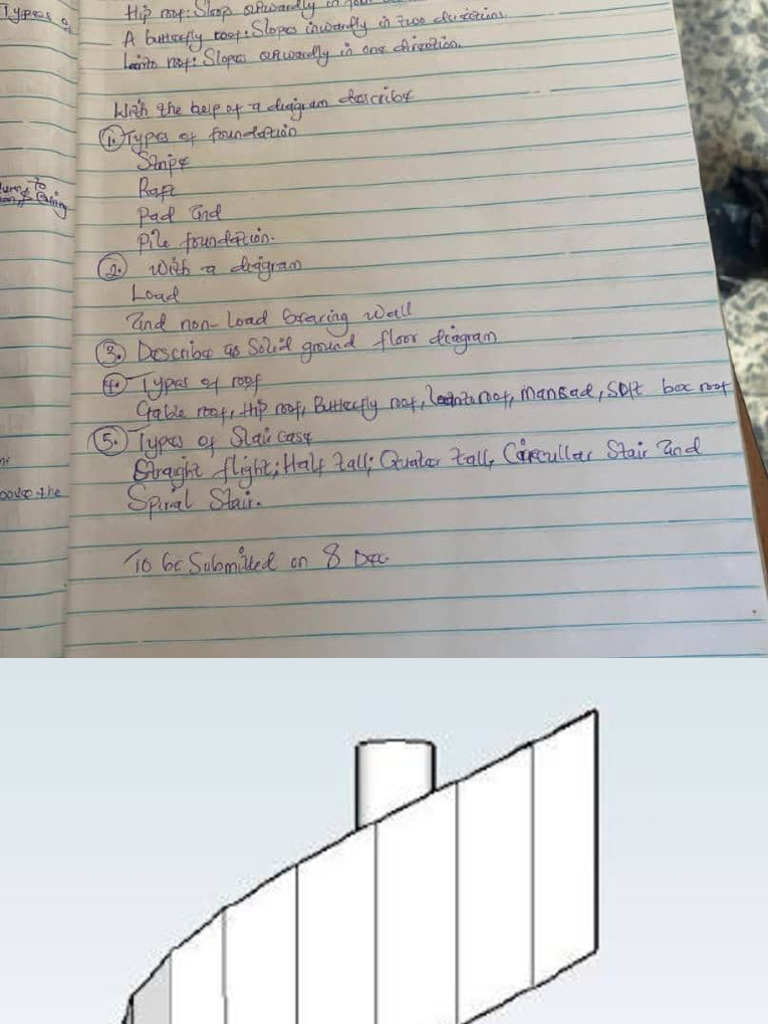 Types of
Hip roof: Sloop outwardly in
A butterfly roof: Slopes inwardly in two directions.
Leanto roof: Slopes outwardly in one direction.
With the help of a diagram describe
1. Types of foundation
Stripe
Raft
Pad and
Pile foundation.
2. With a diagram
Load
and non-Load bearing Wall
3. Describe as Solid ground floor diagram
4. Types of roof
Gable roof, Hip roof, Butterfly roof, leanto roof, Mansad, Salt box roof
5. Types of Staircase
Straight flight; Half tall; Quater tall, Circullar Stair and
above the
Spiral Stair.
To be Submitted on 8 Dec